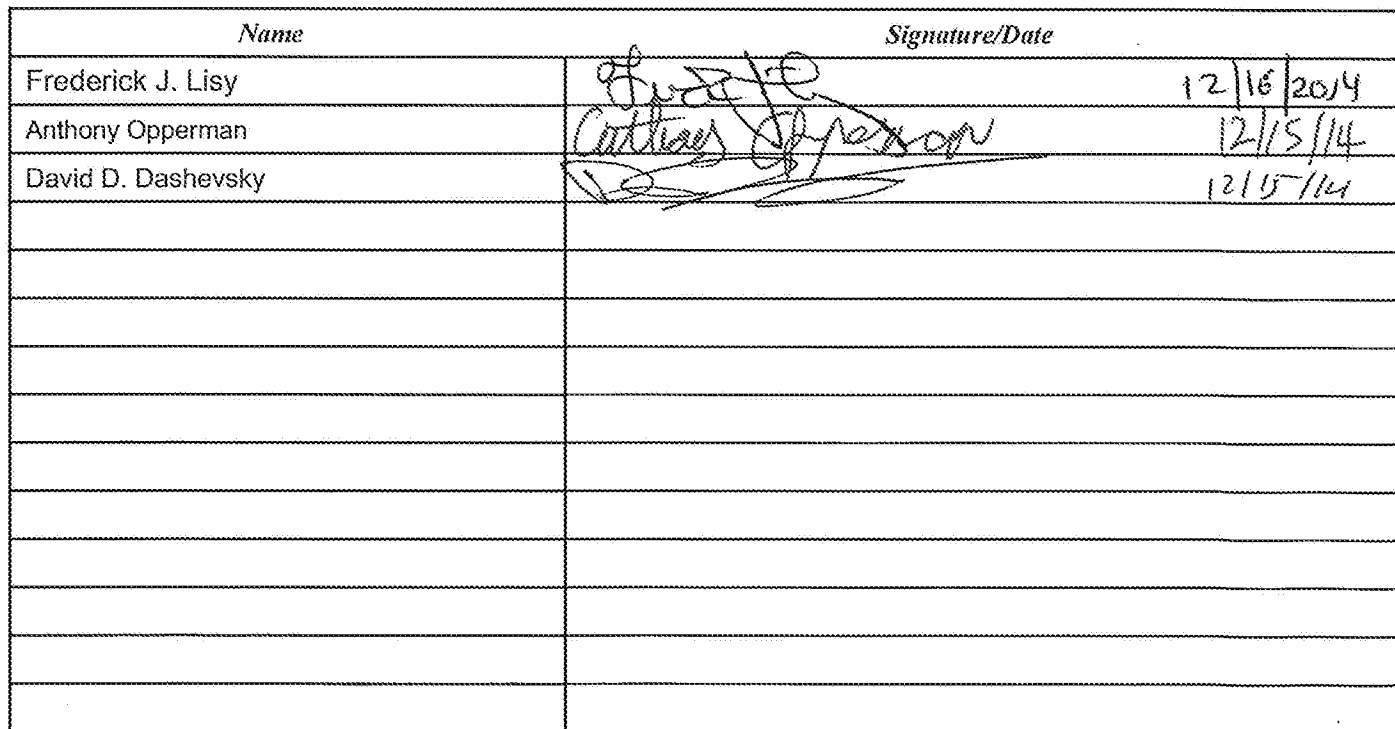 Name Signature/Date
Frederick J. Lisy 12/16/2014
Anthony Opperman Anthony Opperman 12/15/14
David D. Dashevsky 12/15/14